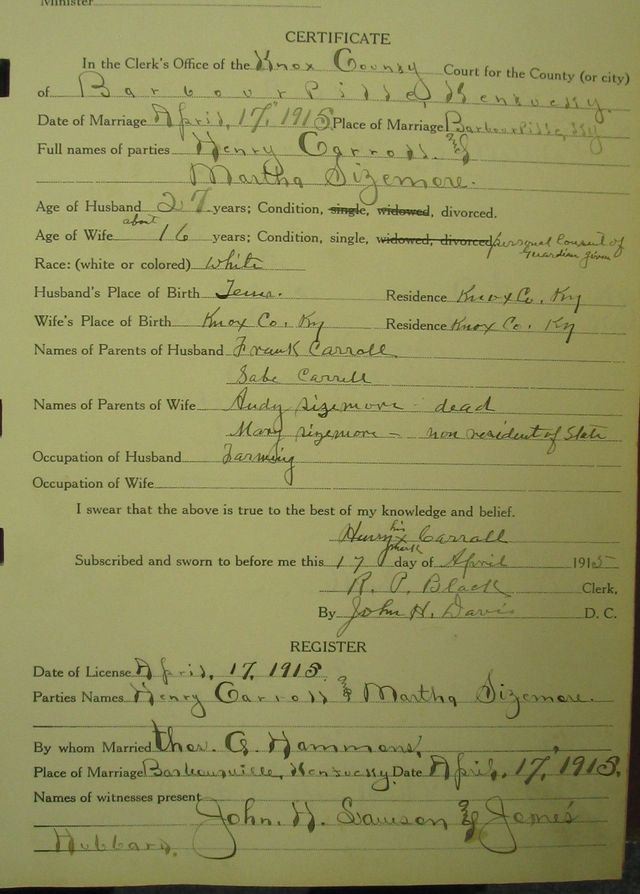 Minister
CERTIFICATE
In the Clerk's Office of the Knox County Court for the County (or city)
of Barbourville, Kentucky.
Date of Marriage April, 17, 1915. Place of Marriage Barbourville, Ky
Full names of parties Henry Carroll. &
Martha Sizemore.
Age of Husband 27 years; Condition, single, widowed, divorced.
Age of Wife about 16 years; Condition, single, widowed, divorced personal Consent of Guardian given
Race: (white or colored) White
Husband's Place of Birth Tenn. Residence Knox Co. Ky
Wife's Place of Birth Knox Co. Ky Residence Knox Co. Ky
Names of Parents of Husband Frank Carroll
Sabe Carrell
Names of Parents of Wife Andy Sizemore - dead
Mary Sizemore - non resident of State
Occupation of Husband Farming
Occupation of Wife
I swear that the above is true to the best of my knowledge and belief.
Henry his x mark Carroll
Subscribed and sworn to before me this 17 day of April 1915
R. P. Black Clerk.
By John H. Davis D. C.
REGISTER
Date of License April, 17, 1915.
Parties Names Henry Carroll & Martha Sizemore.
By whom Married Thos. G. Hammons,
Place of Marriage Barbourville, Kentucky. Date April, 17, 1915.
Names of witnesses present
John. H. Lawson & James
Hubbard.